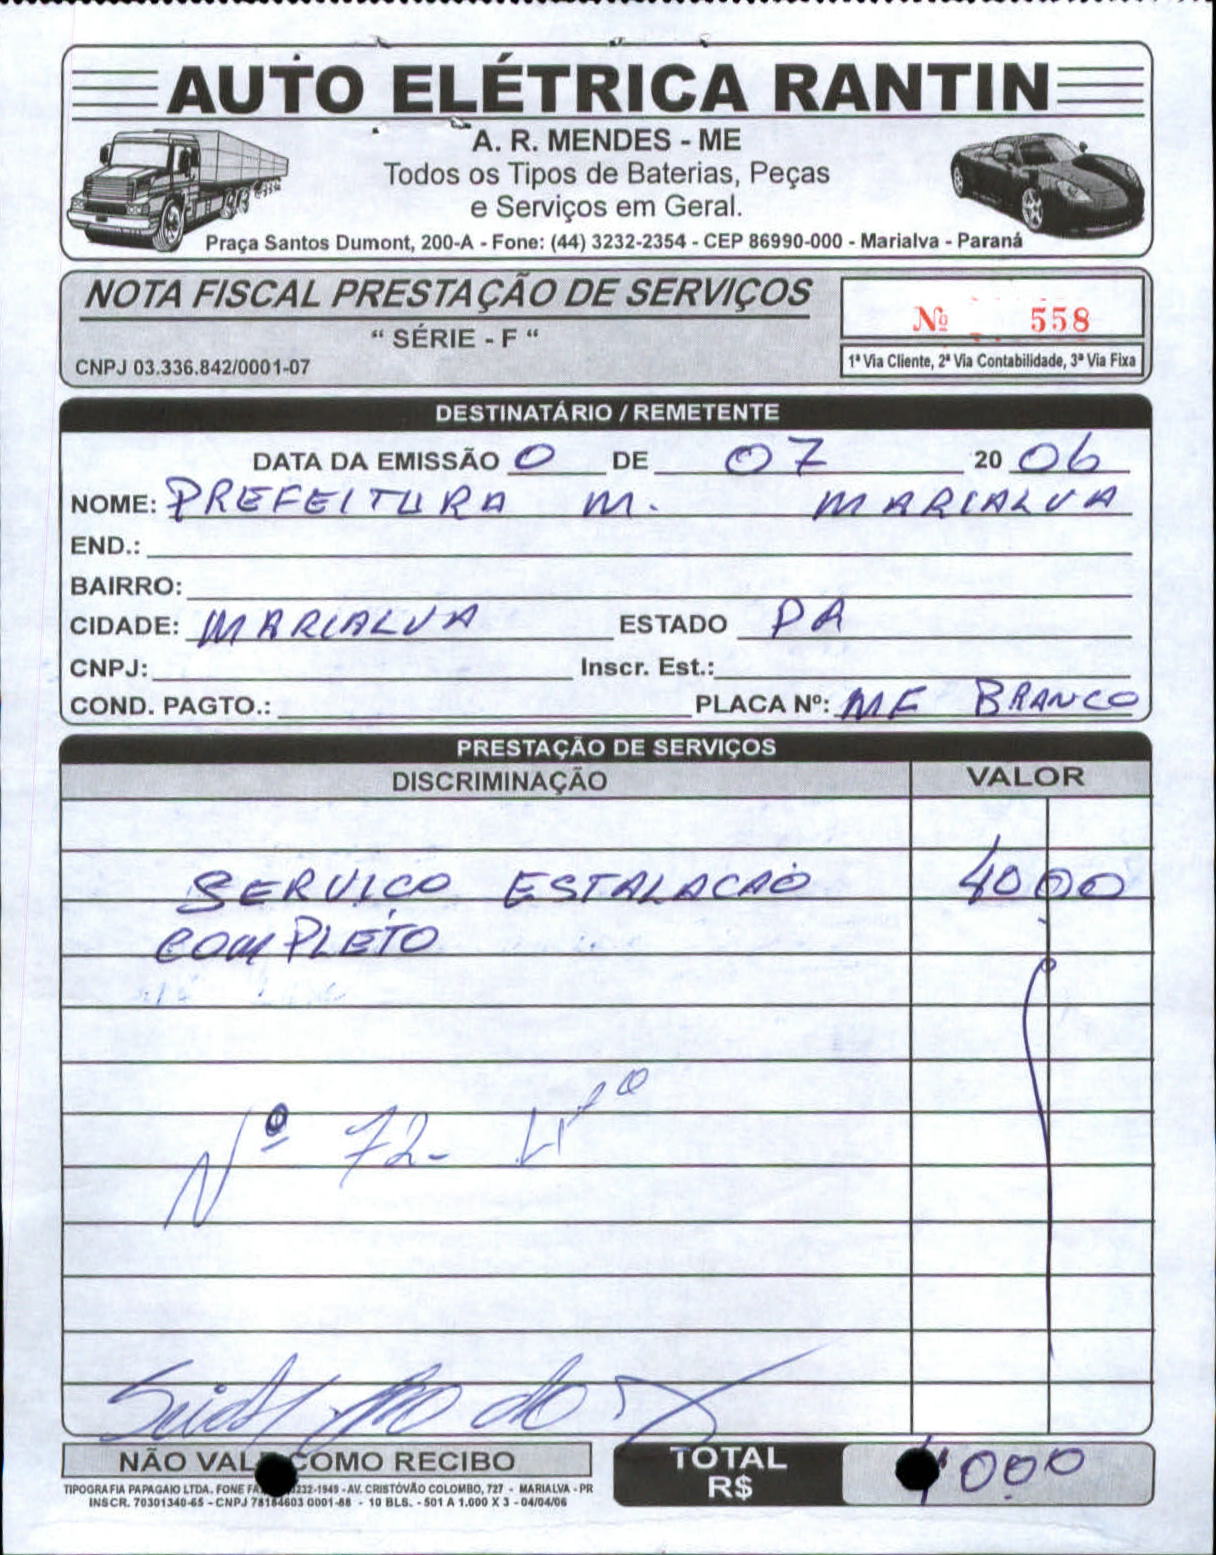 AUTO ELÉTRICA RANTIN
A. R. MENDES - ME
Todos os Tipos de Baterias, Peças
e Serviços em Geral.
Praça Santos Dumont, 200-A - Fone: (44) 3232-2354 - CEP 86990-000 - Marialva - Paraná
NOTA FISCAL PRESTAÇÃO DE SERVIÇOS
" SÉRIE - F "
CNPJ 03.336.842/0001-07
Nº 558
1ª Via Cliente, 2ª Via Contabilidade, 3ª Via Fixa
DESTINATÁRIO / REMETENTE
DATA DA EMISSÃO 0 DE 07 20 06
NOME: PREFEITURA M. MARIALVA
END.:
BAIRRO:
CIDADE: MARIALVA ESTADO PA
CNPJ: Inscr. Est.:
COND. PAGTO.: PLACA Nº: MF BRANCO
PRESTAÇÃO DE SERVIÇOS
DISCRIMINAÇÃO VALOR
SERVICO ESTALACAO 40 00
COMPLETO
Nº 72-
NÃO VALE COMO RECIBO
TOTAL
R$ 4000
TIPOGRAFIA PAPAGAIO LTDA. FONE 232-1949 - AV. CRISTÓVÃO COLOMBO, 727 - MARIALVA - PR
INSCR. 70301340-65 - CNPJ 78184603 0001-88 - 10 BLS. - 501 A 1.000 X 3 - 04/04/06